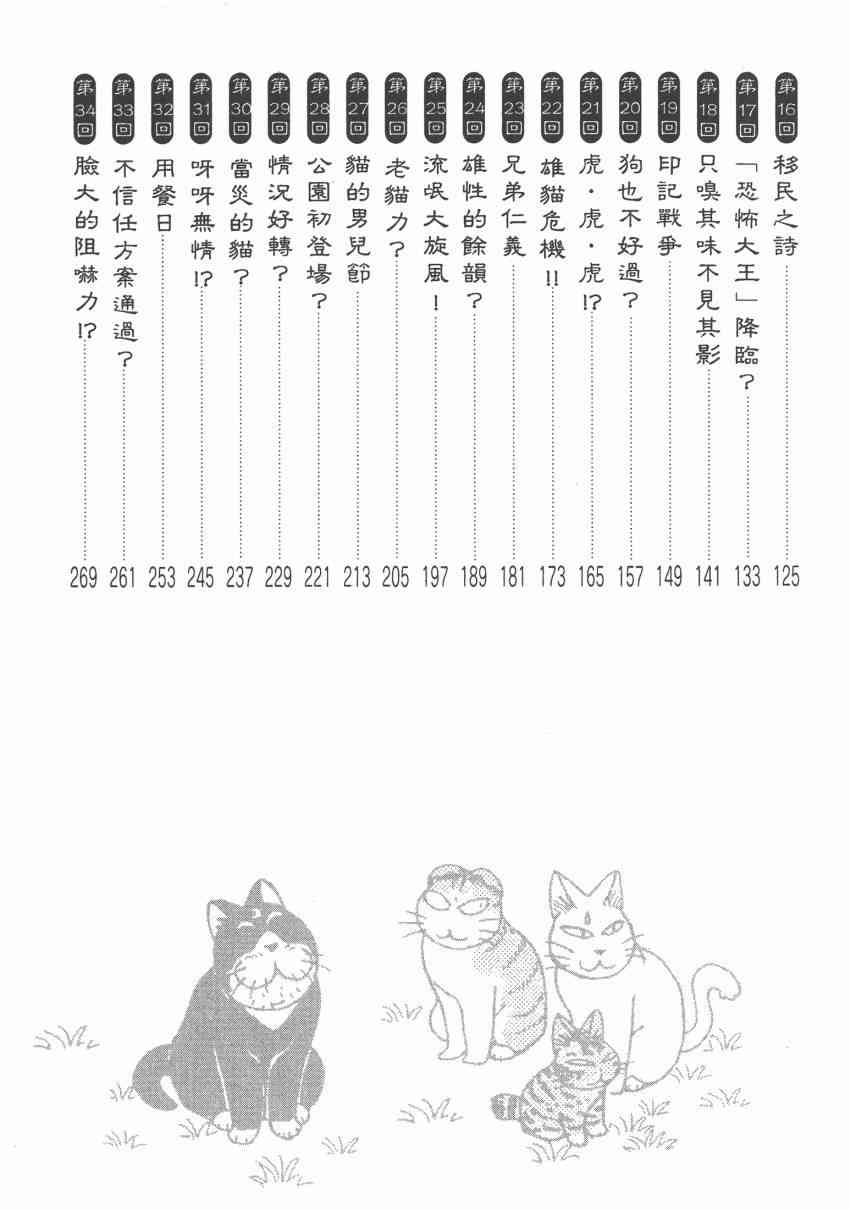 第16回 移民之詩 125
第17回 「恐怖大王」降臨？ 133
第18回 只嗅其味不見其影 141
第19回 印記戰爭 149
第20回 狗也不好過？ 157
第21回 虎・虎・虎!? 165
第22回 雄貓危機!! 173
第23回 兄弟仁義 181
第24回 雄性的餘韻？ 189
第25回 流氓大旋風！ 197
第26回 老貓力？ 205
第27回 貓的男兒節 213
第28回 公園初登場？ 221
第29回 情況好轉？ 229
第30回 當災的貓？ 237
第31回 呀呀無情!? 245
第32回 用餐日 253
第33回 不信任方案通過？ 261
第34回 臉大的阻嚇力!? 269